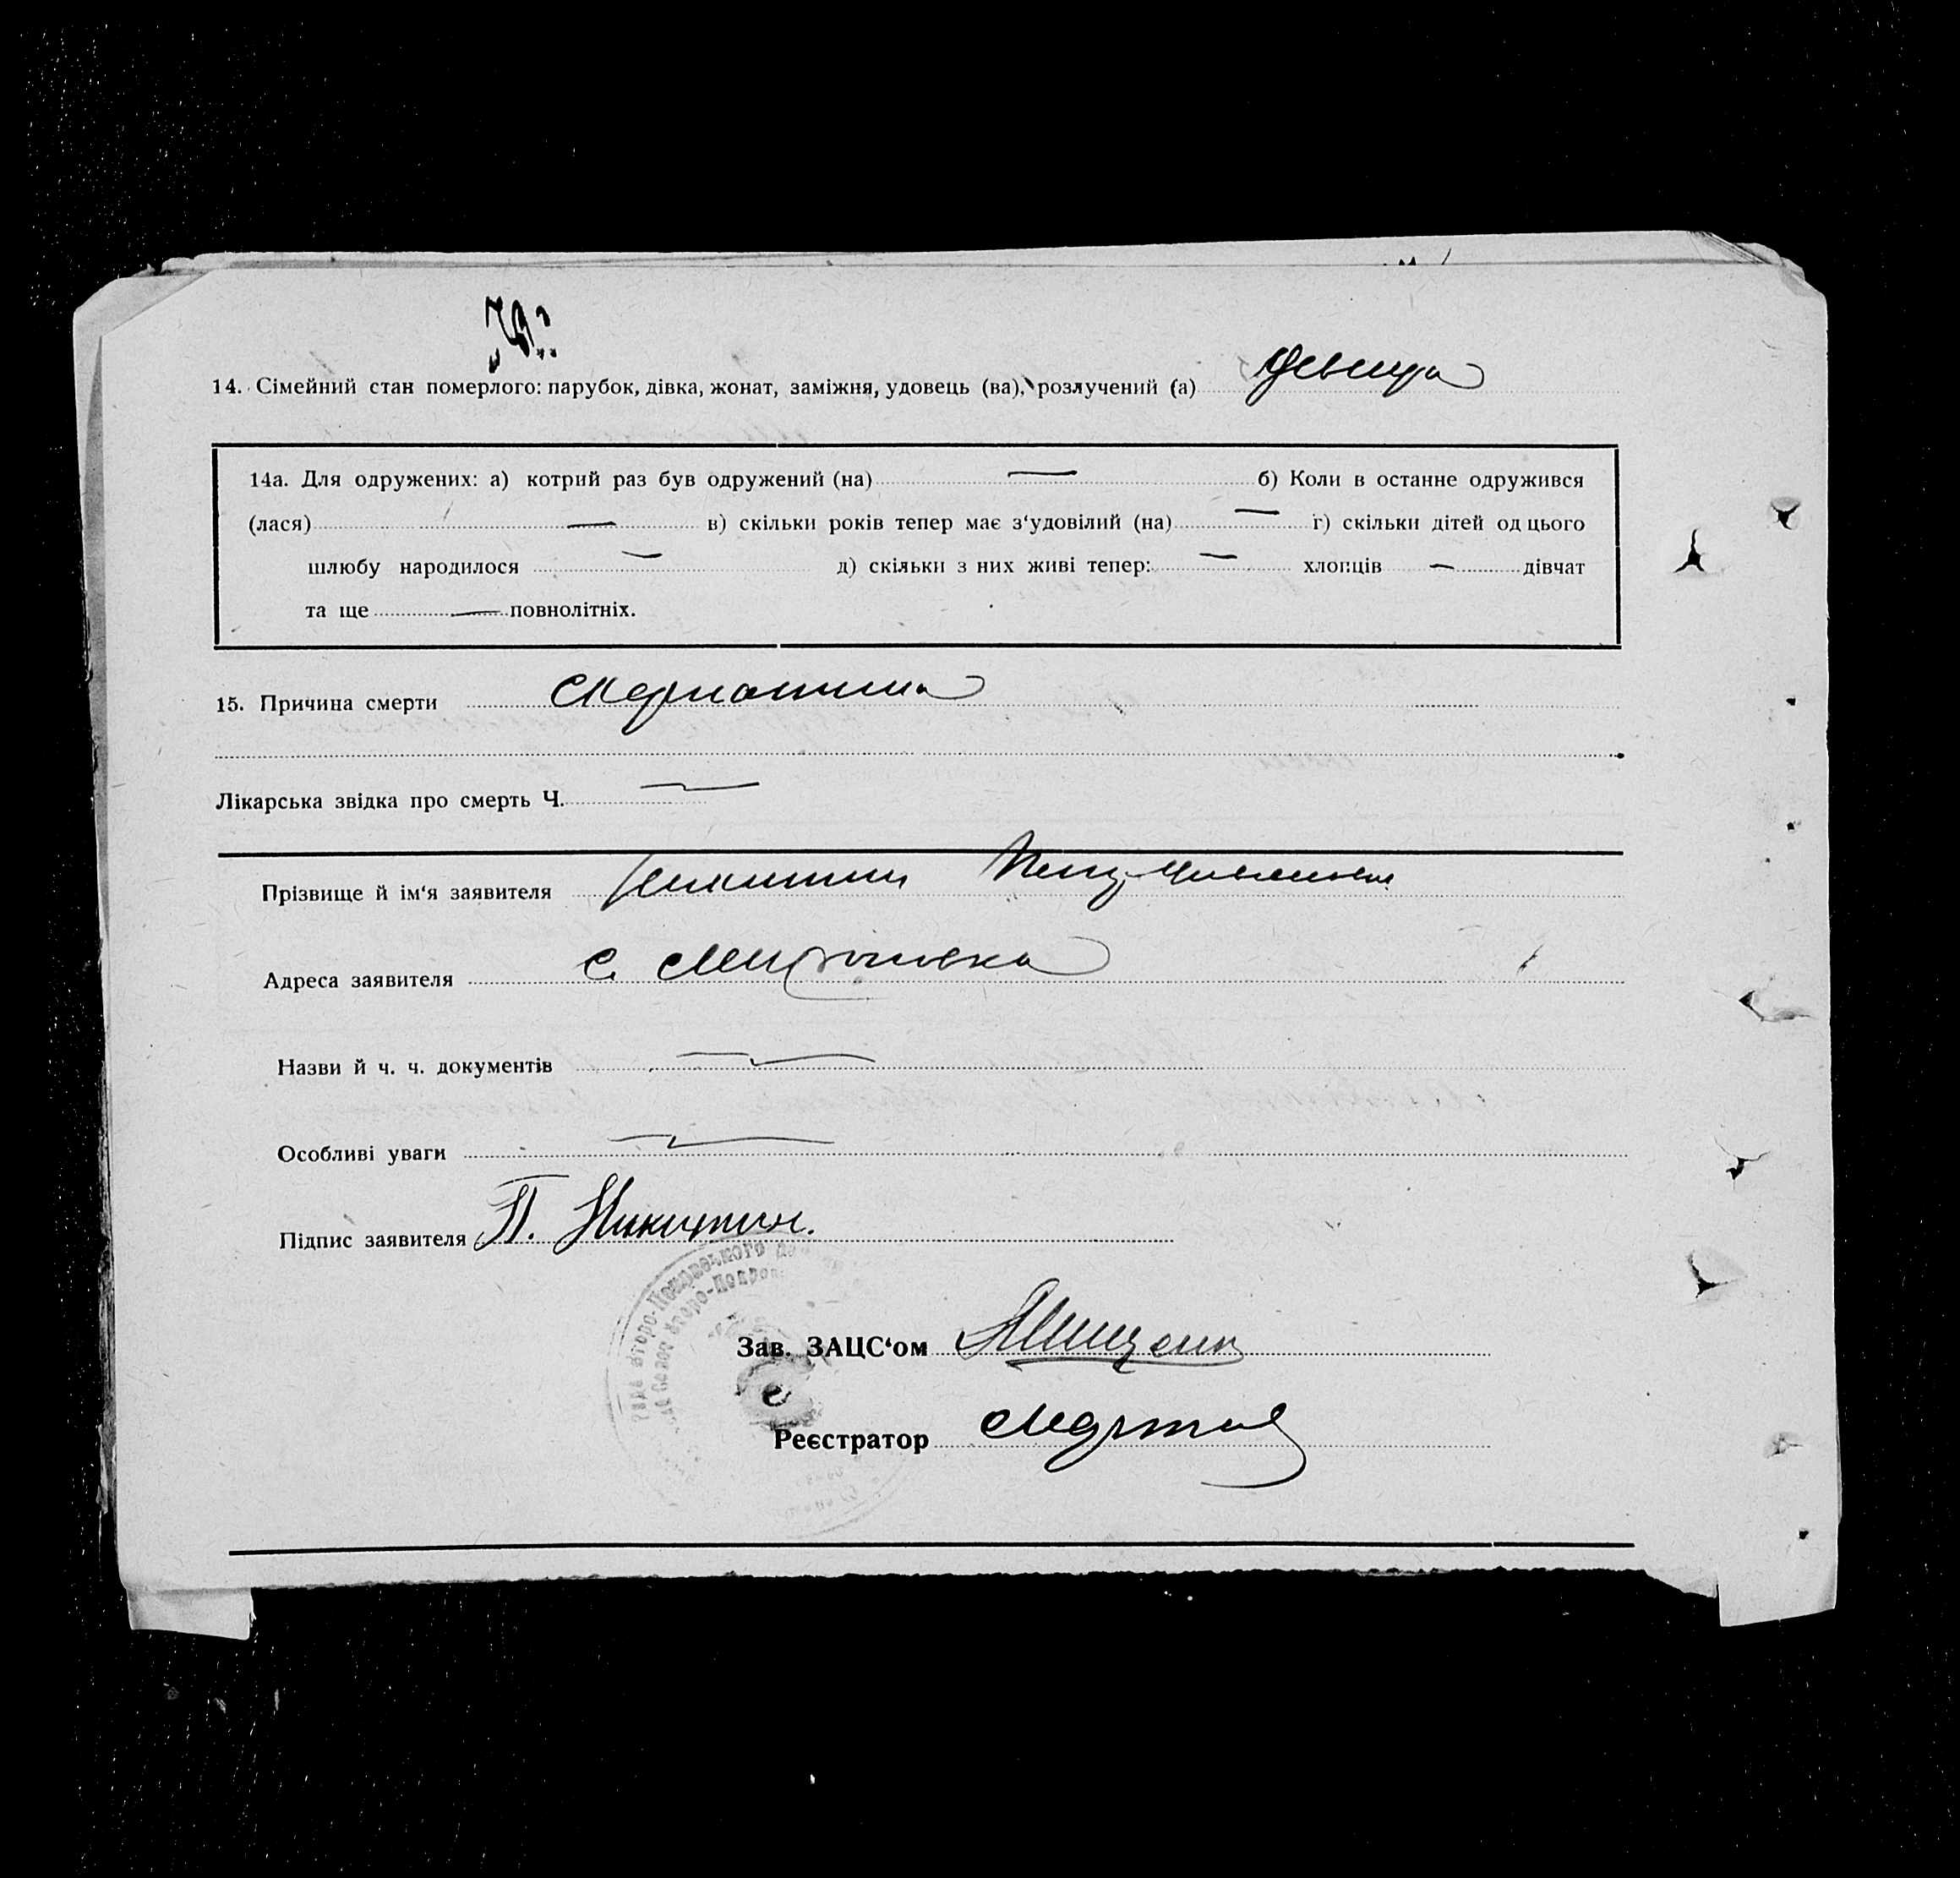 14. Сімейний стан померлого: парубок, дівка, жонат, заміжня, удовець (ва), розлучений (а) девица
14а. Для одружених: а) котрий раз був одружений (на) — б) Коли в останне одружився
(лася) — в) скільки років тепер має з‘удовілий (на) — г) скільки дітей од цього
шлюбу народилося — д) скільки з них живі тепер: — хлопців — дівчат
та ще — повнолітніх.
15. Причина смерти скарлатина
Лікарська звідка про смерть Ч. —
Прізвище й ім‘я заявителя Никитин
Адреса заявителя с.
Назви й ч. ч. документів —
Особливі уваги —
Підпис заявителя П. Никитин.
Зав. ЗАЦС‘ом
Реєстратор